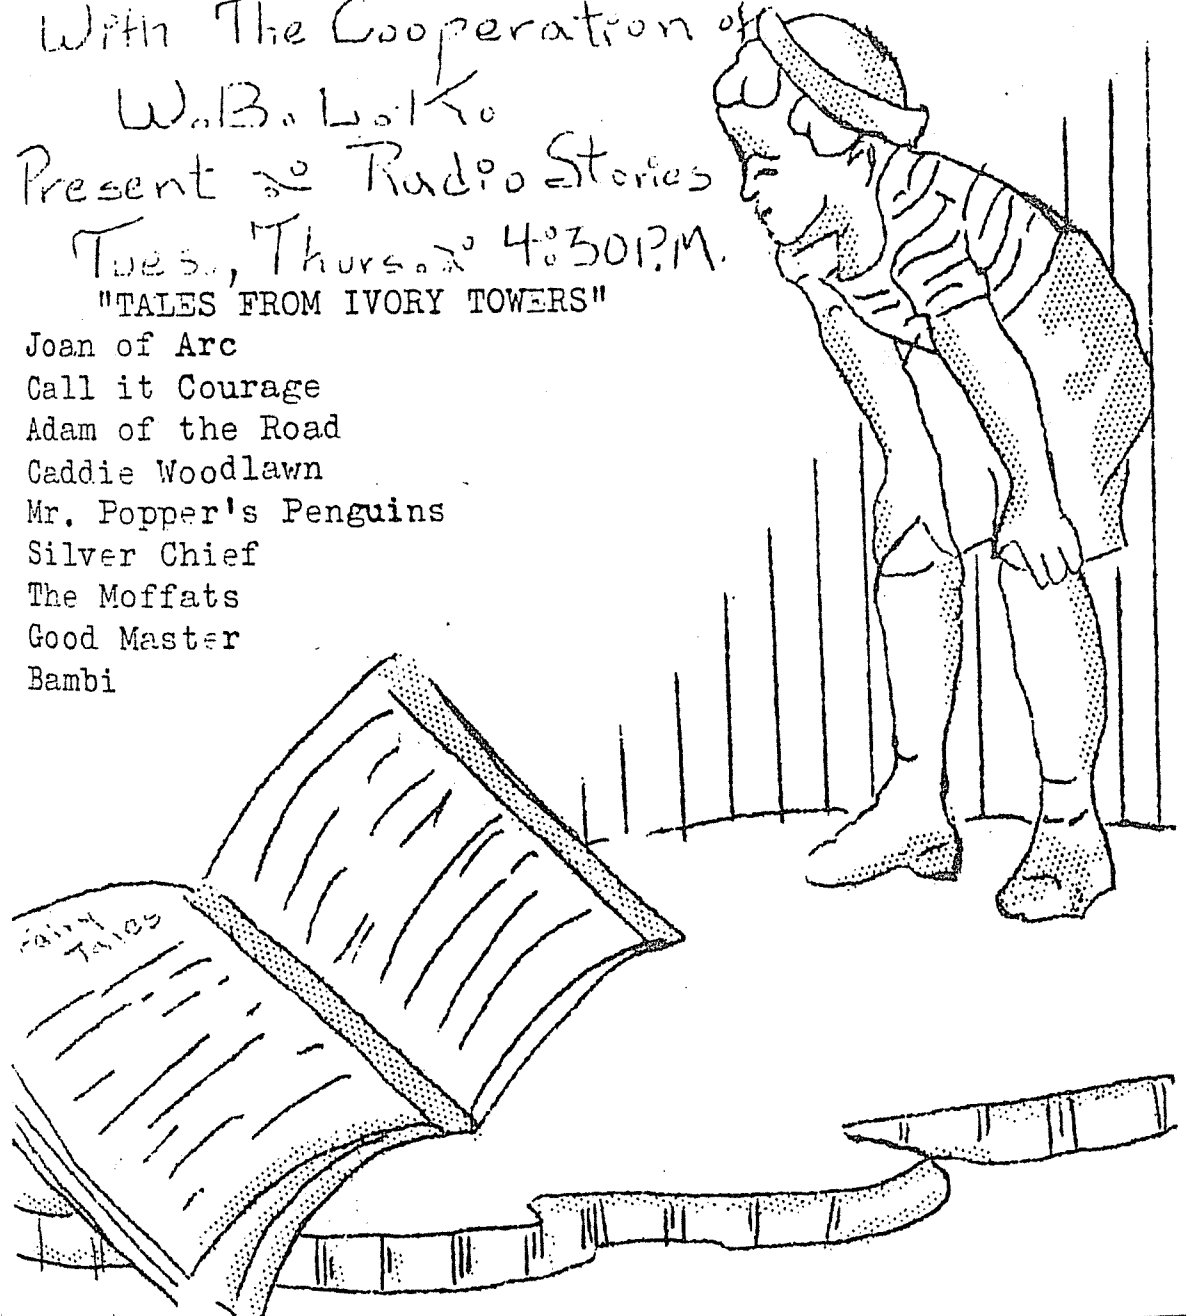 With The Cooperation of
W.B.L.K.
Present Radio Stories
Tues., Thurs. 4:30 P.M.
"TALES FROM IVORY TOWERS"
Joan of Arc
Call it Courage
Adam of the Road
Caddie Woodlawn
Mr. Popper's Penguins
Silver Chief
The Moffats
Good Master
Bambi
Fairy
Tales